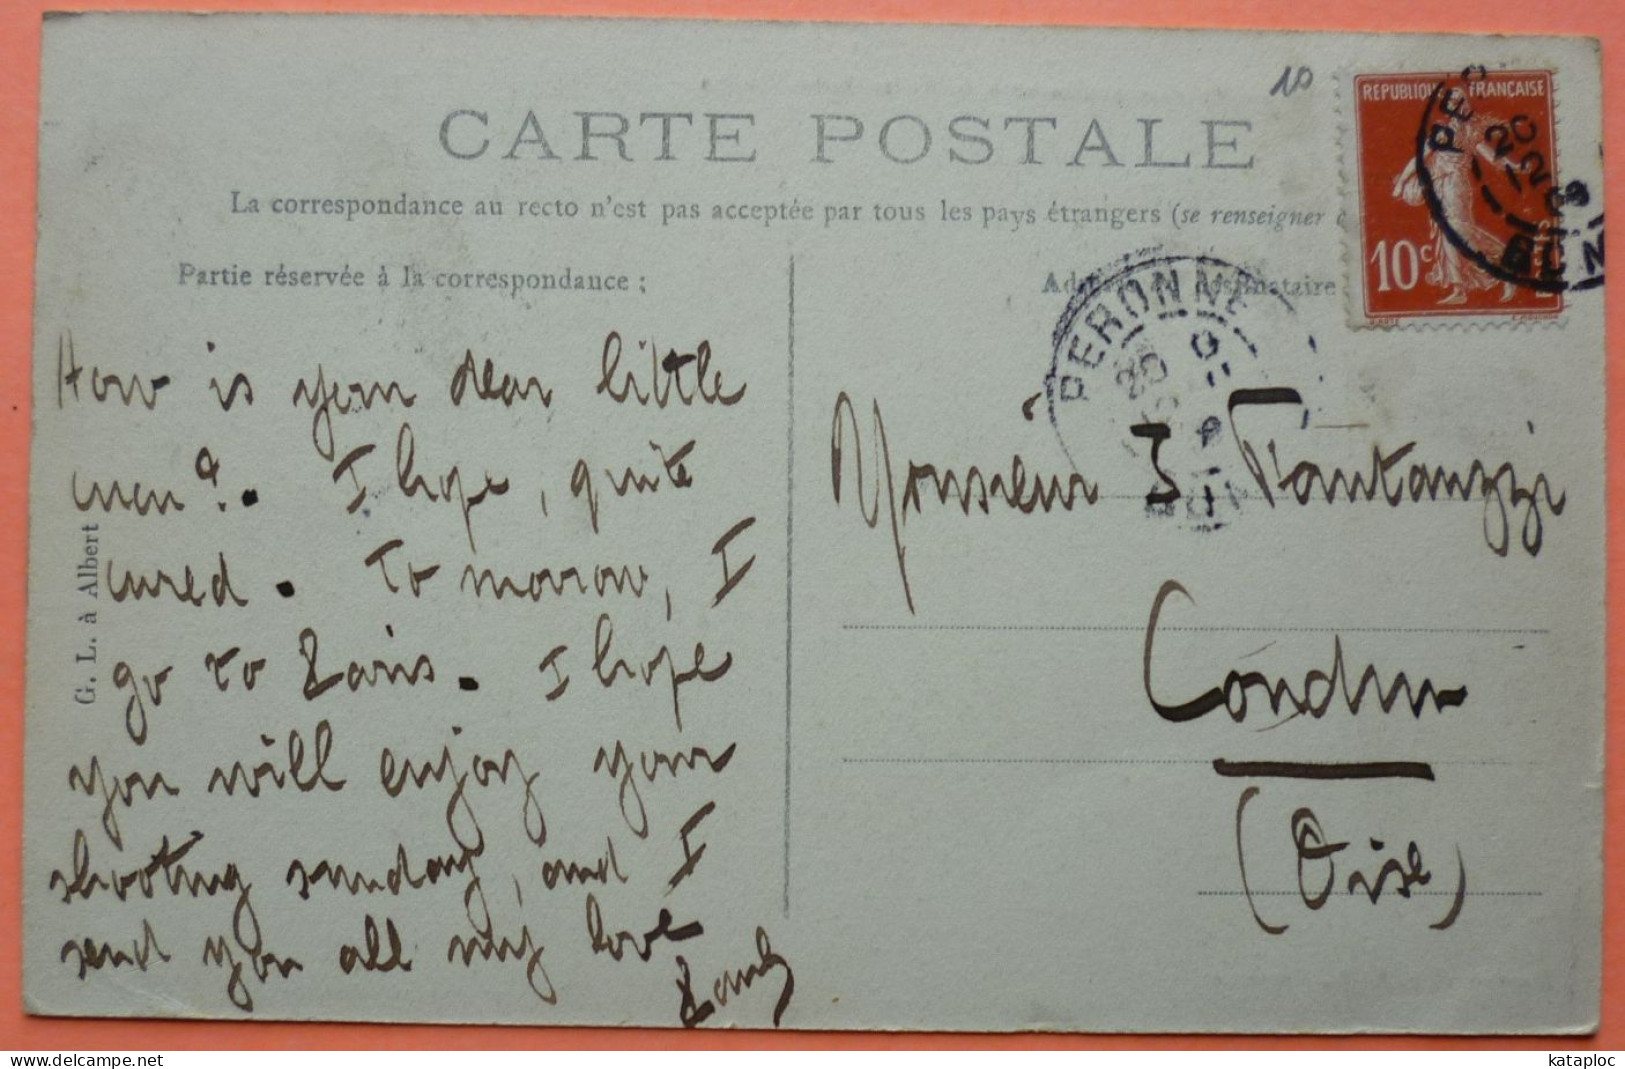 10
CARTE POSTALE
La correspondance au recto n'est pas acceptée par tous les pays étrangers (se renseigner
Partie réservée à la correspondance :
REPUBLIQUE FRANÇAISE
10c
20
12
PERONNE
20
G. L. à Albert
How is your dear little
men ? . I hope, quite
cured. To morrow, I
go to Paris. I hope
you will enjoy your
shooting sunday, and I
send you all my love
Monsieur J Fantauzzi
Condun
(Oise)
delcampe.net
kataploc